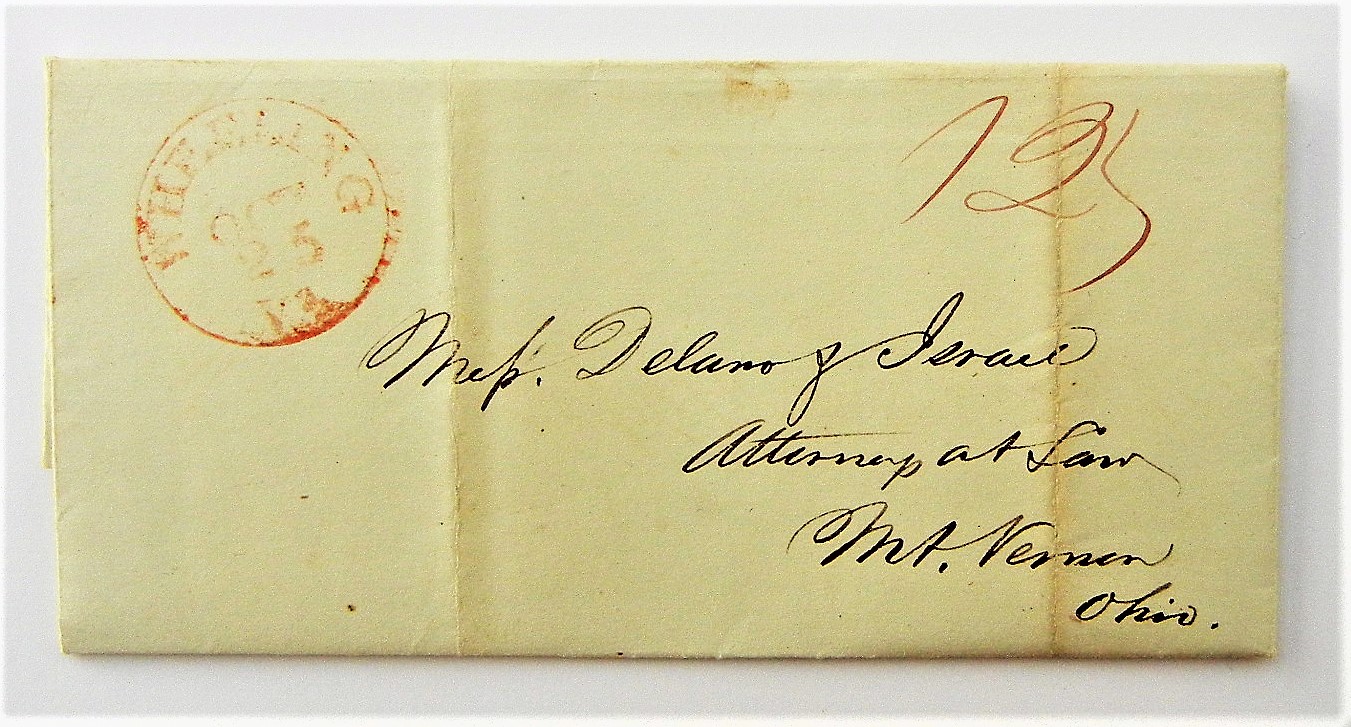 WHEELING
OCT
25
Va
12½
Mess. Delano & Israel
Attorneys at Law
Mt. Vernon
Ohio.